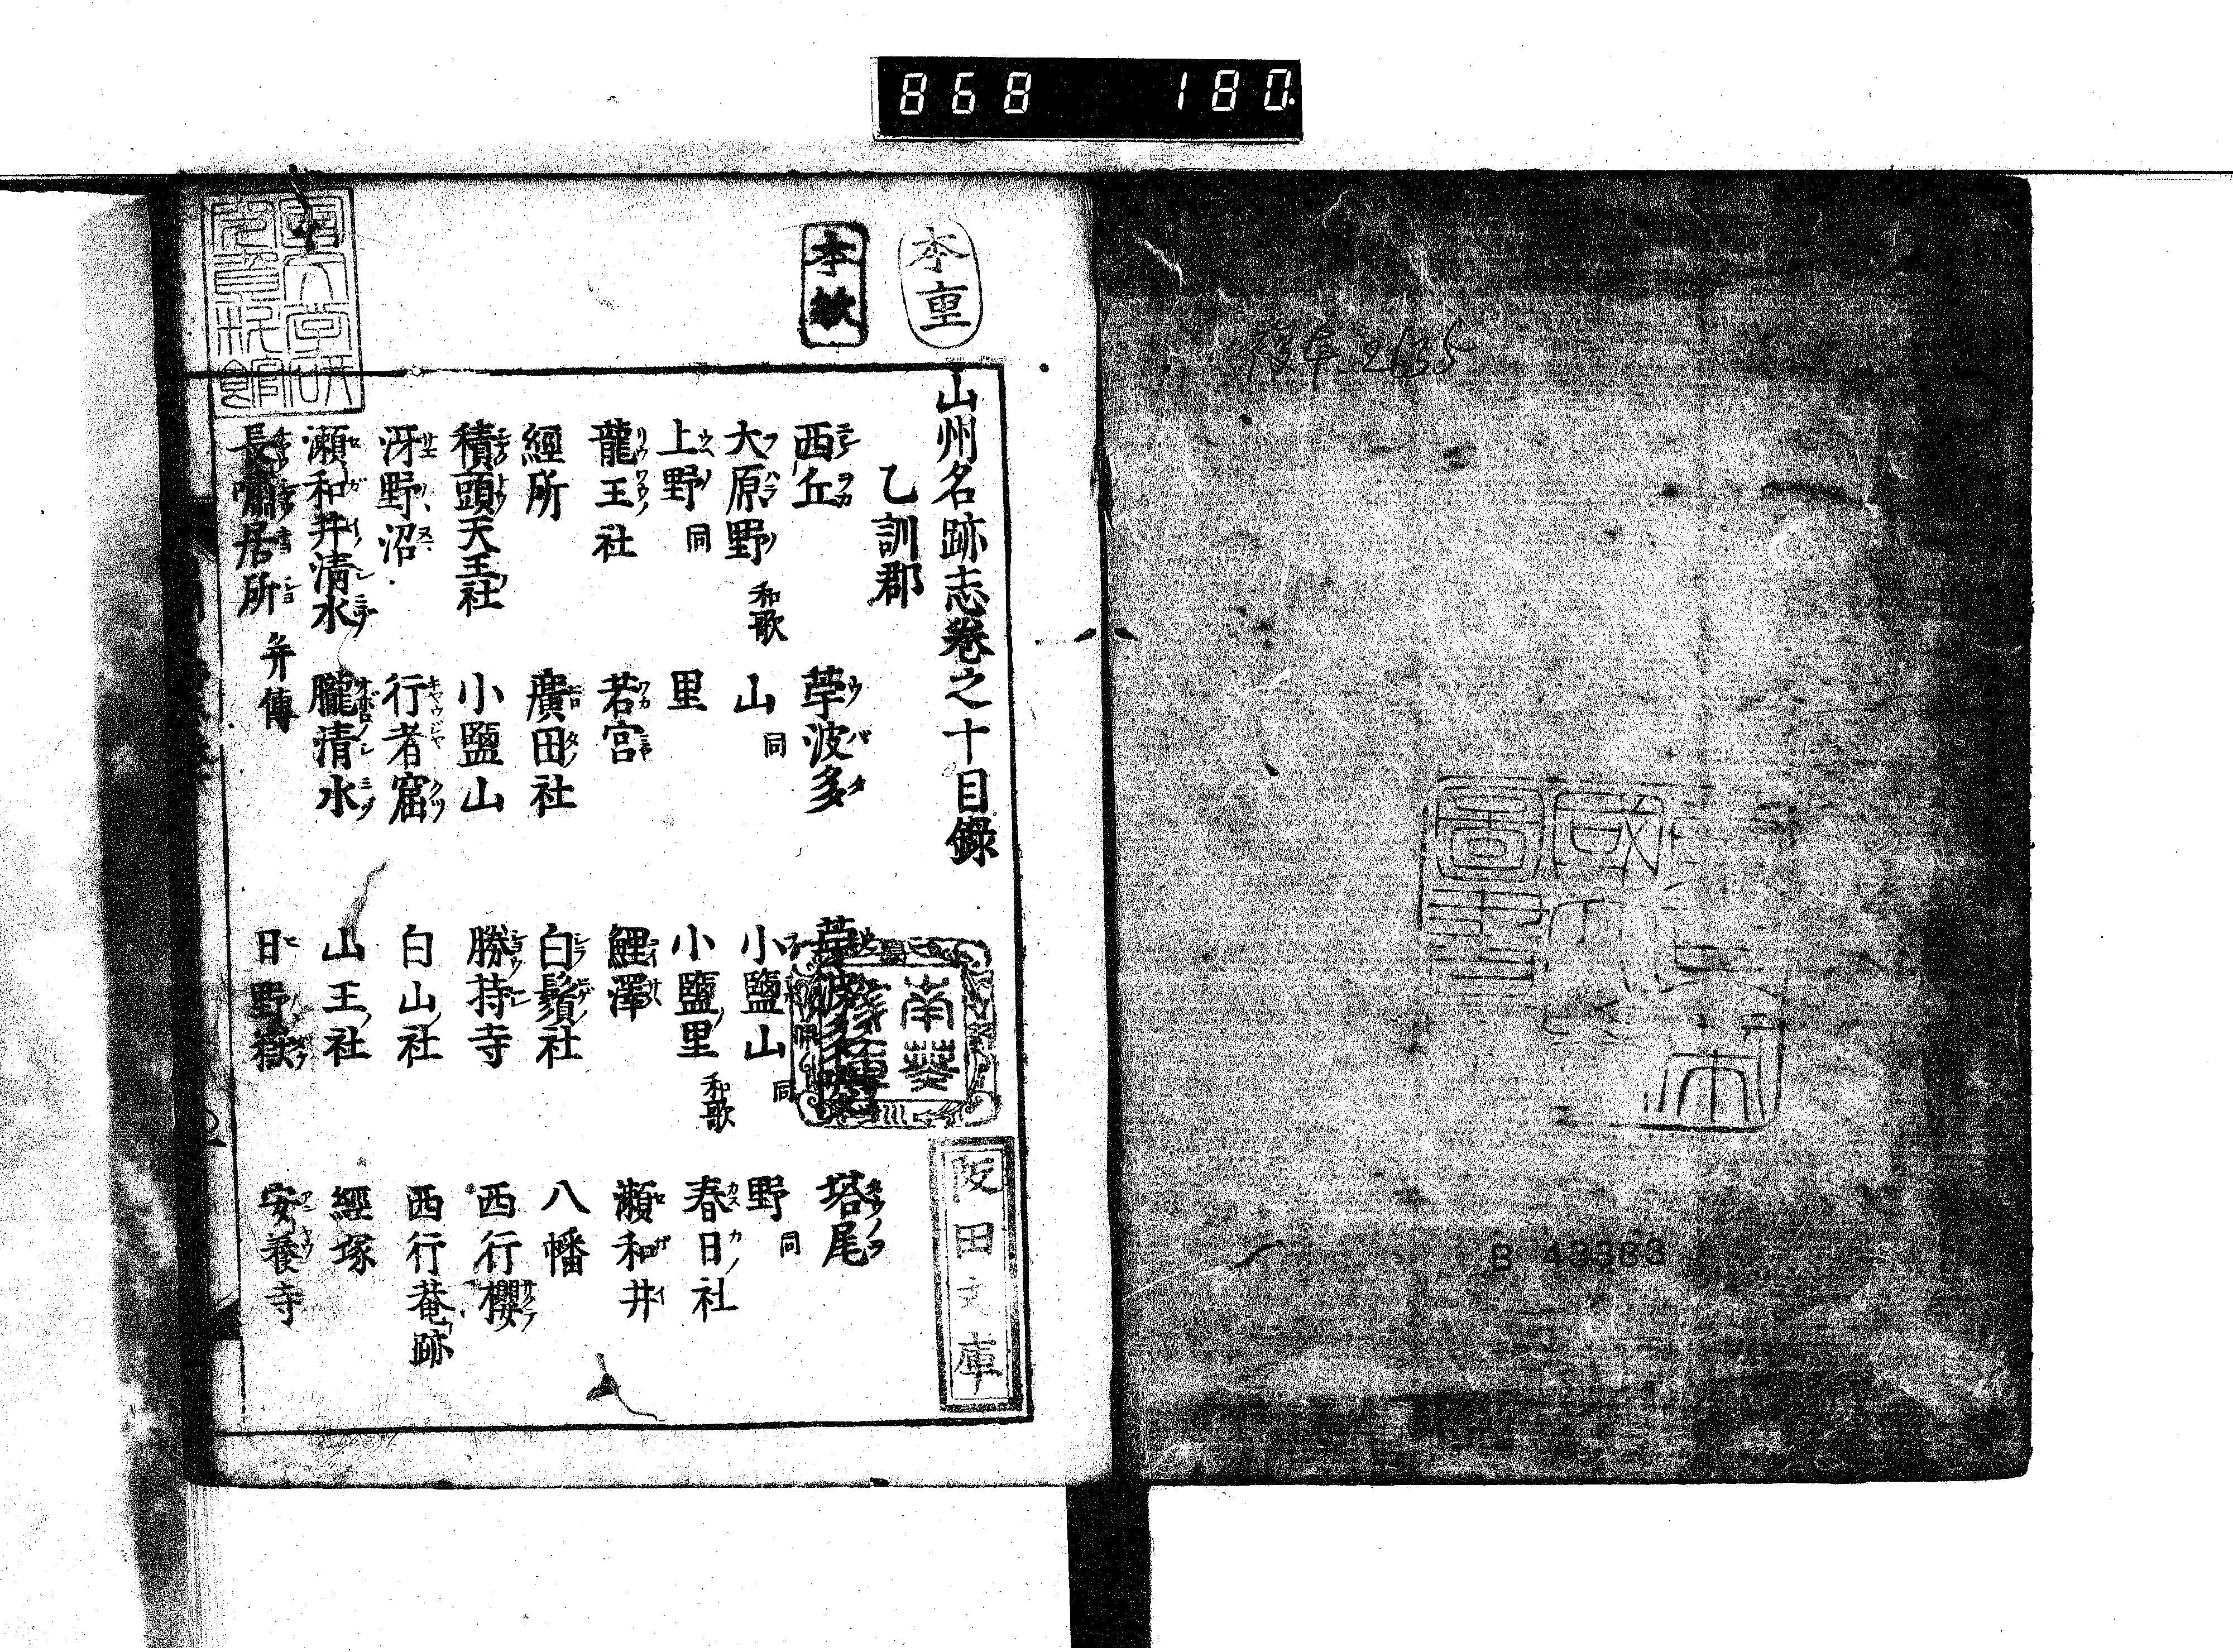 868 180
複本 2635
B 43383
本重
本教
山州名跡志卷之十目錄
乙訓郡
西丘 莩波多 塔尾
大原野 和歌 山 同 小鹽山 同 野 同
上野 同 里 小鹽里 和歌 春日社
龍王社 若宮 鯉澤 瀬和井
經所 廣田社 白鬚社 八幡
積頭天王社 小鹽山 勝持寺 西行櫻
冴野沼 行者窟 白山社 西行菴跡
瀬和井清水 朧清水 山王社 經塚
長嘯居所 并傳 日野嶽 安養寺
阪田文庫